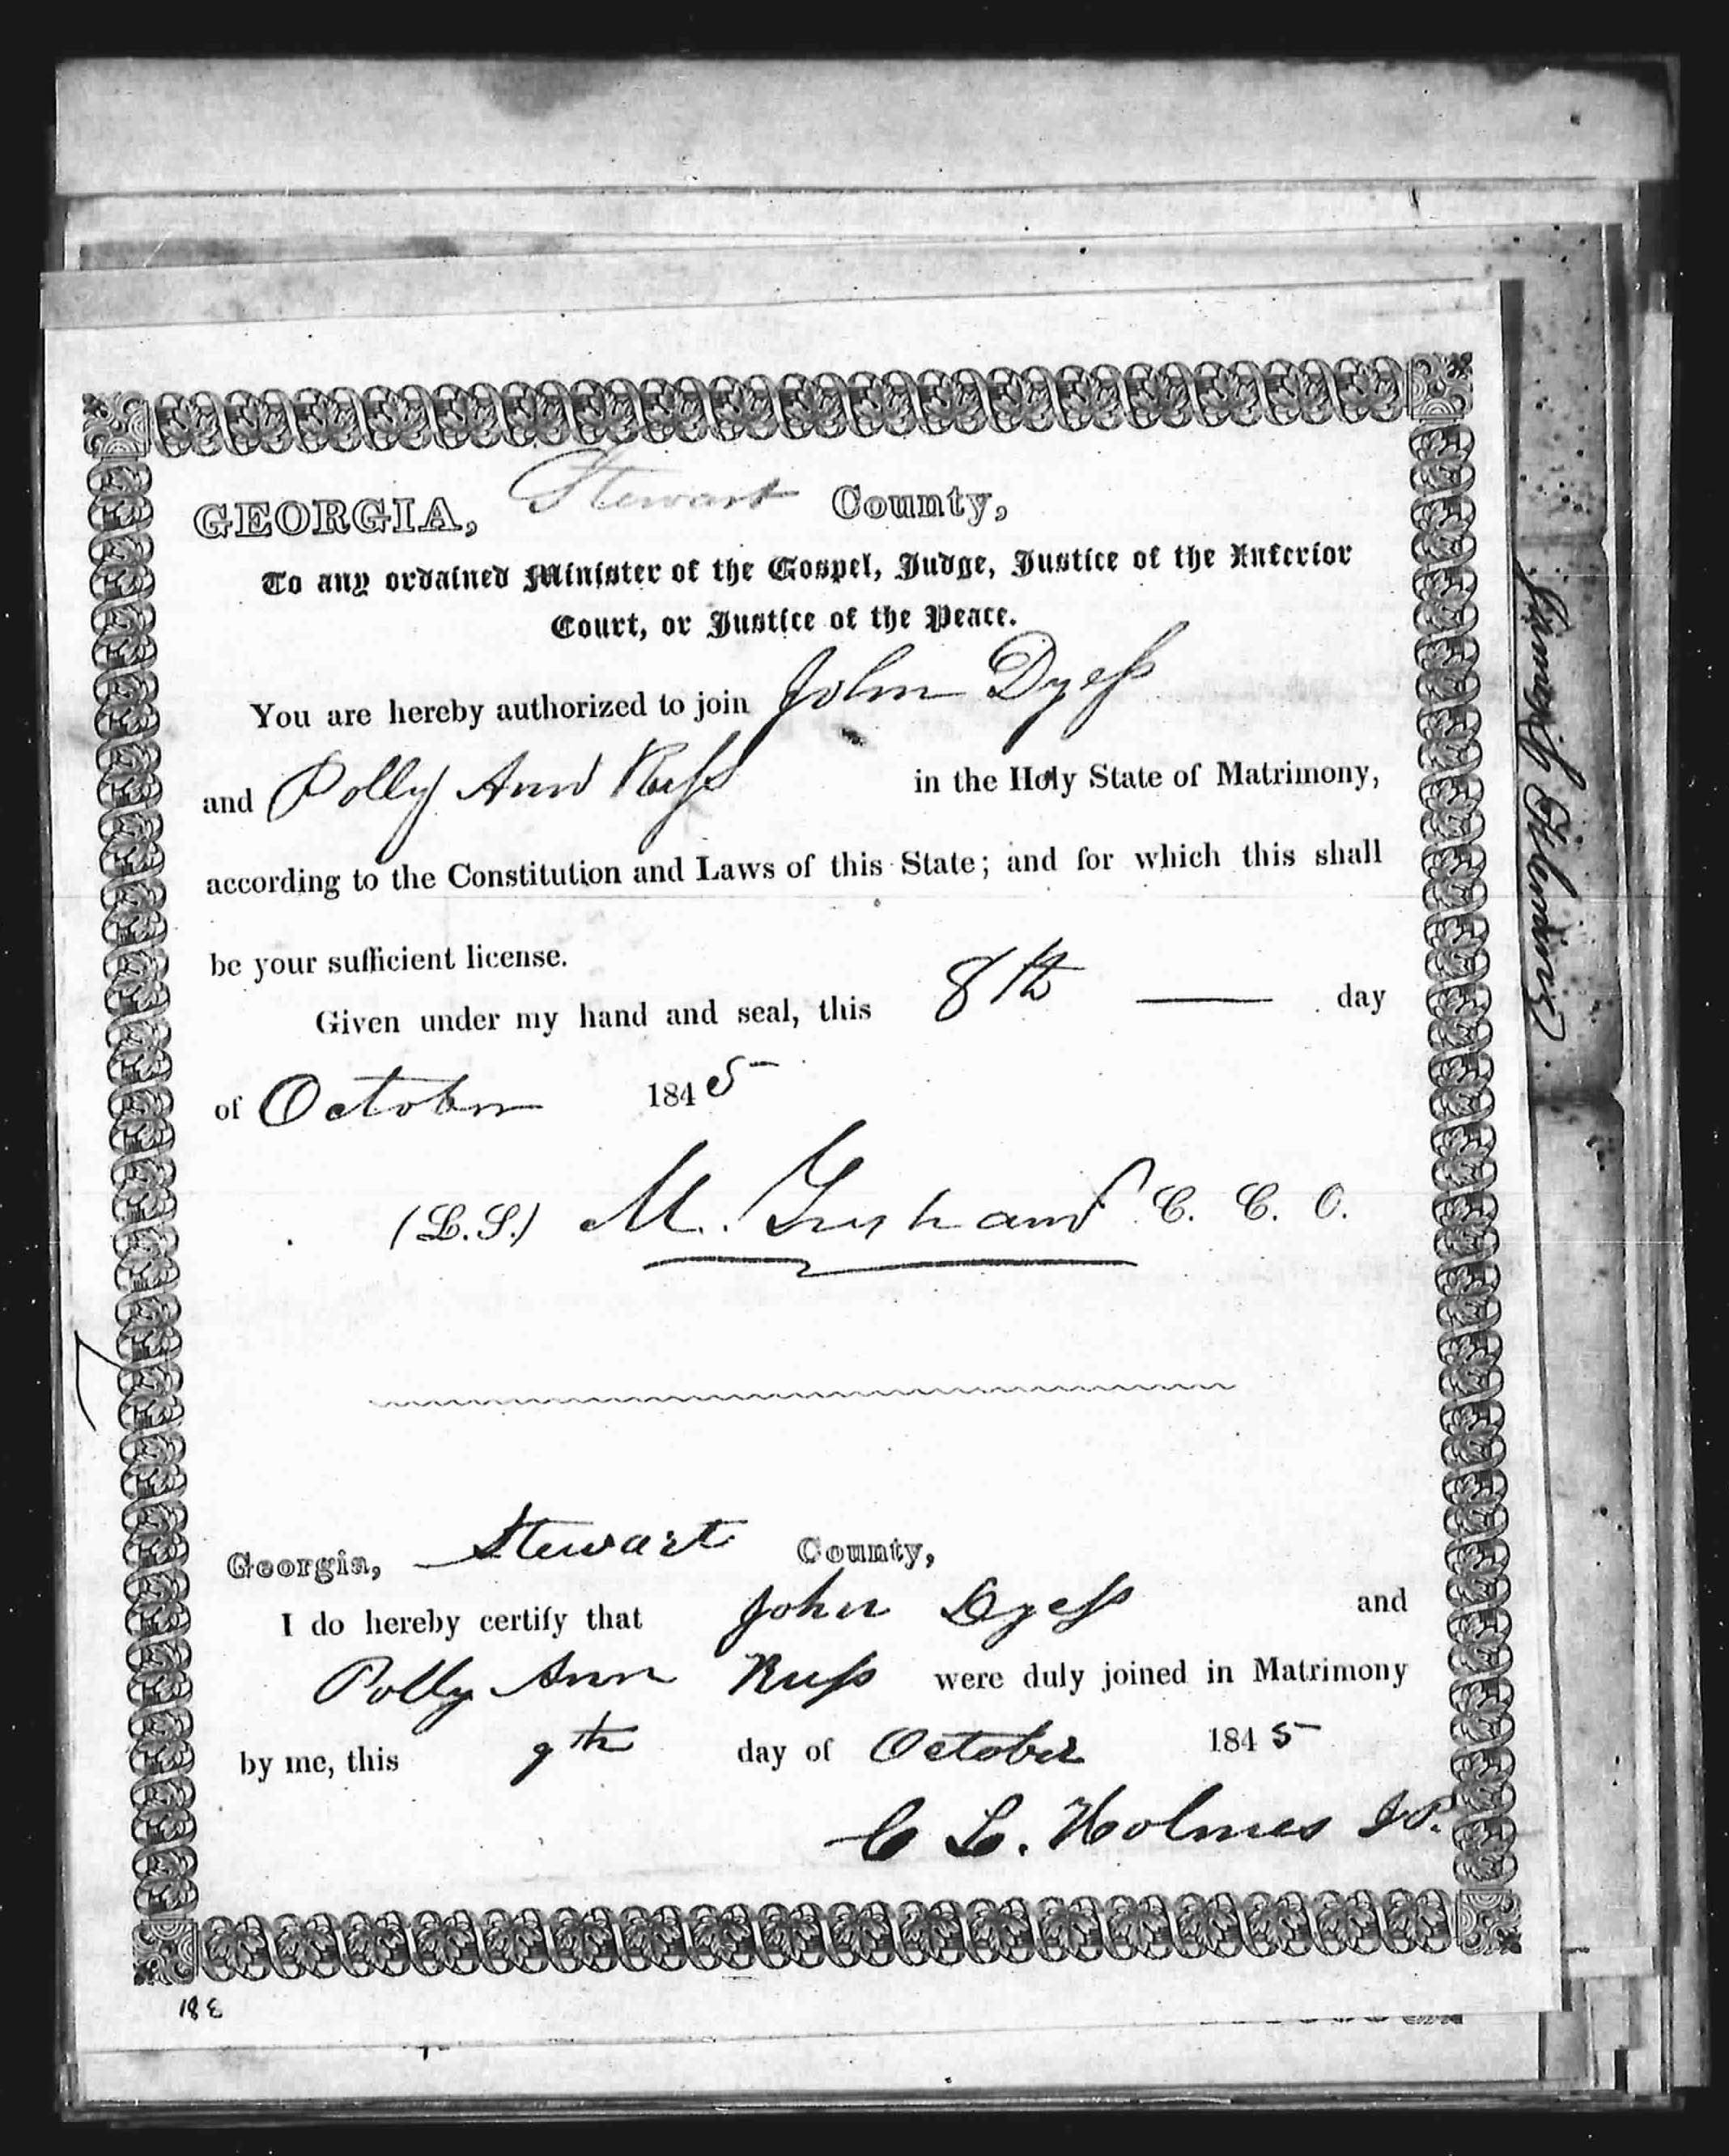 GEORGIA, Stewart County,
To any ordained Minister of the Gospel, Judge, Justice of the Inferior
Court, or Justice of the Peace.
You are hereby authorized to join John Dyess
and Polly Ann Russ in the Holy State of Matrimony,
according to the Constitution and Laws of this State; and for which this shall
be your sufficient license.
Given under my hand and seal, this 8th — day
of October 1845
(L.S.) M. Gresham C. C. O.
Georgia, Stewart County,
I do hereby certify that John Dyess and
Polly Ann Russ were duly joined in Matrimony
by me, this 9th day of October 1845
C L. Holmes JP.